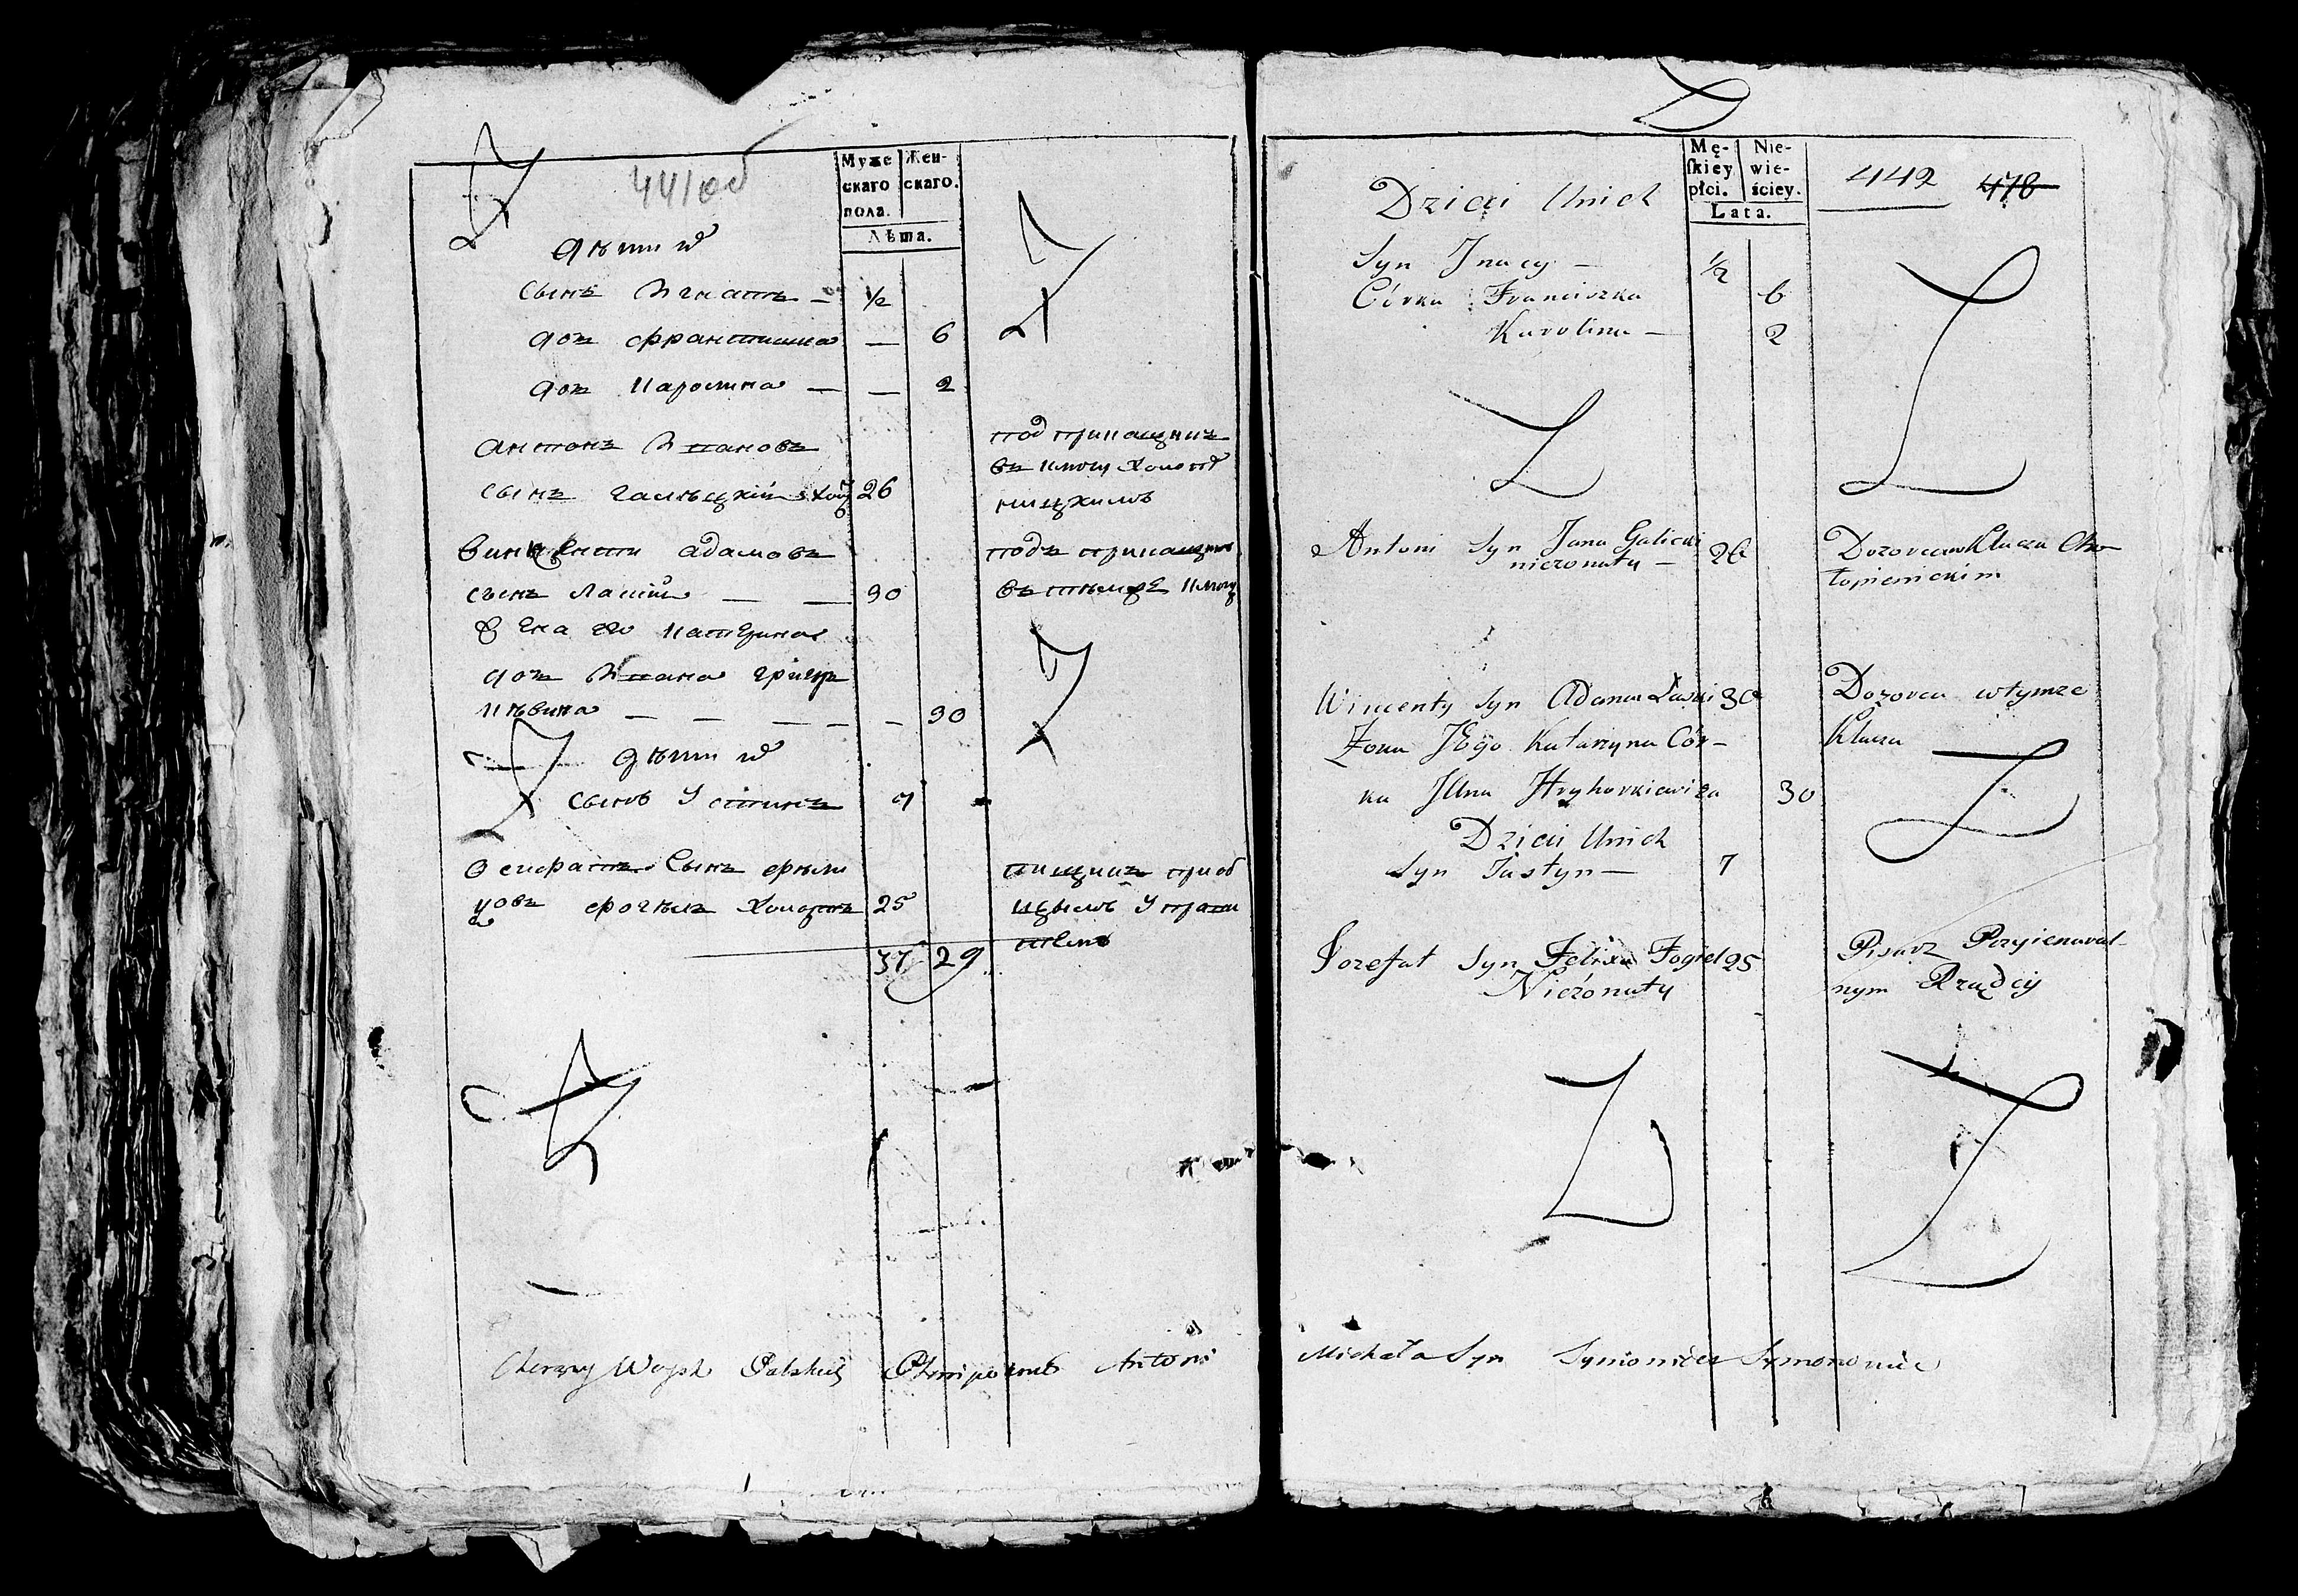 441 об
Муже
скаго
пола.
Жен-
скаго.
Лѣта.
дѣти
сынъ Игнатъ — ½
доч Франтишка — 6
доч Каролина — — 2
Антонъ Ивановъ
сынъ Галѣцкій хол 26
под прикащик
въ ключу Холоп
ницкимъ
Винценти Адамовъ
сынъ Ласкій — — 30
подъ прикащик
въ тымже ключу
жена его Катерина
доч Ивана Григор
кѣвича — — — — — 30
дѣти
сынъ Устинъ 7
Осифатъ сынъ
ювъ Фогѣлъ Холостъ 25
писчик
37 29
Chorąży Woysk Polskich Antoni
Mę-
skiey
płci.
Nie-
wie-
ściey.
Lata.
442 478
Dzieci Unich
Syn Jnacy — ½
Córka Franciszka 6
Karolina — 2
Antoni Syn Jana Galicki
nieżonaty — 26
Dozorca w Kluczu Cho-
łopienickim
Wincenty Syn Adama Laski 30
Dozorca w tymze
Kluczu
Żona Jego Katarzyna Cór-
ka Jana Hryhorkiewicza 30
Dzieci Unich
Syn Justyn — 7
Jozefat Syn Felixa Fogiel 25
Nieżonaty
Pisarz Przyienaral-
nym Rządcy
Michała Syn Symonowicz